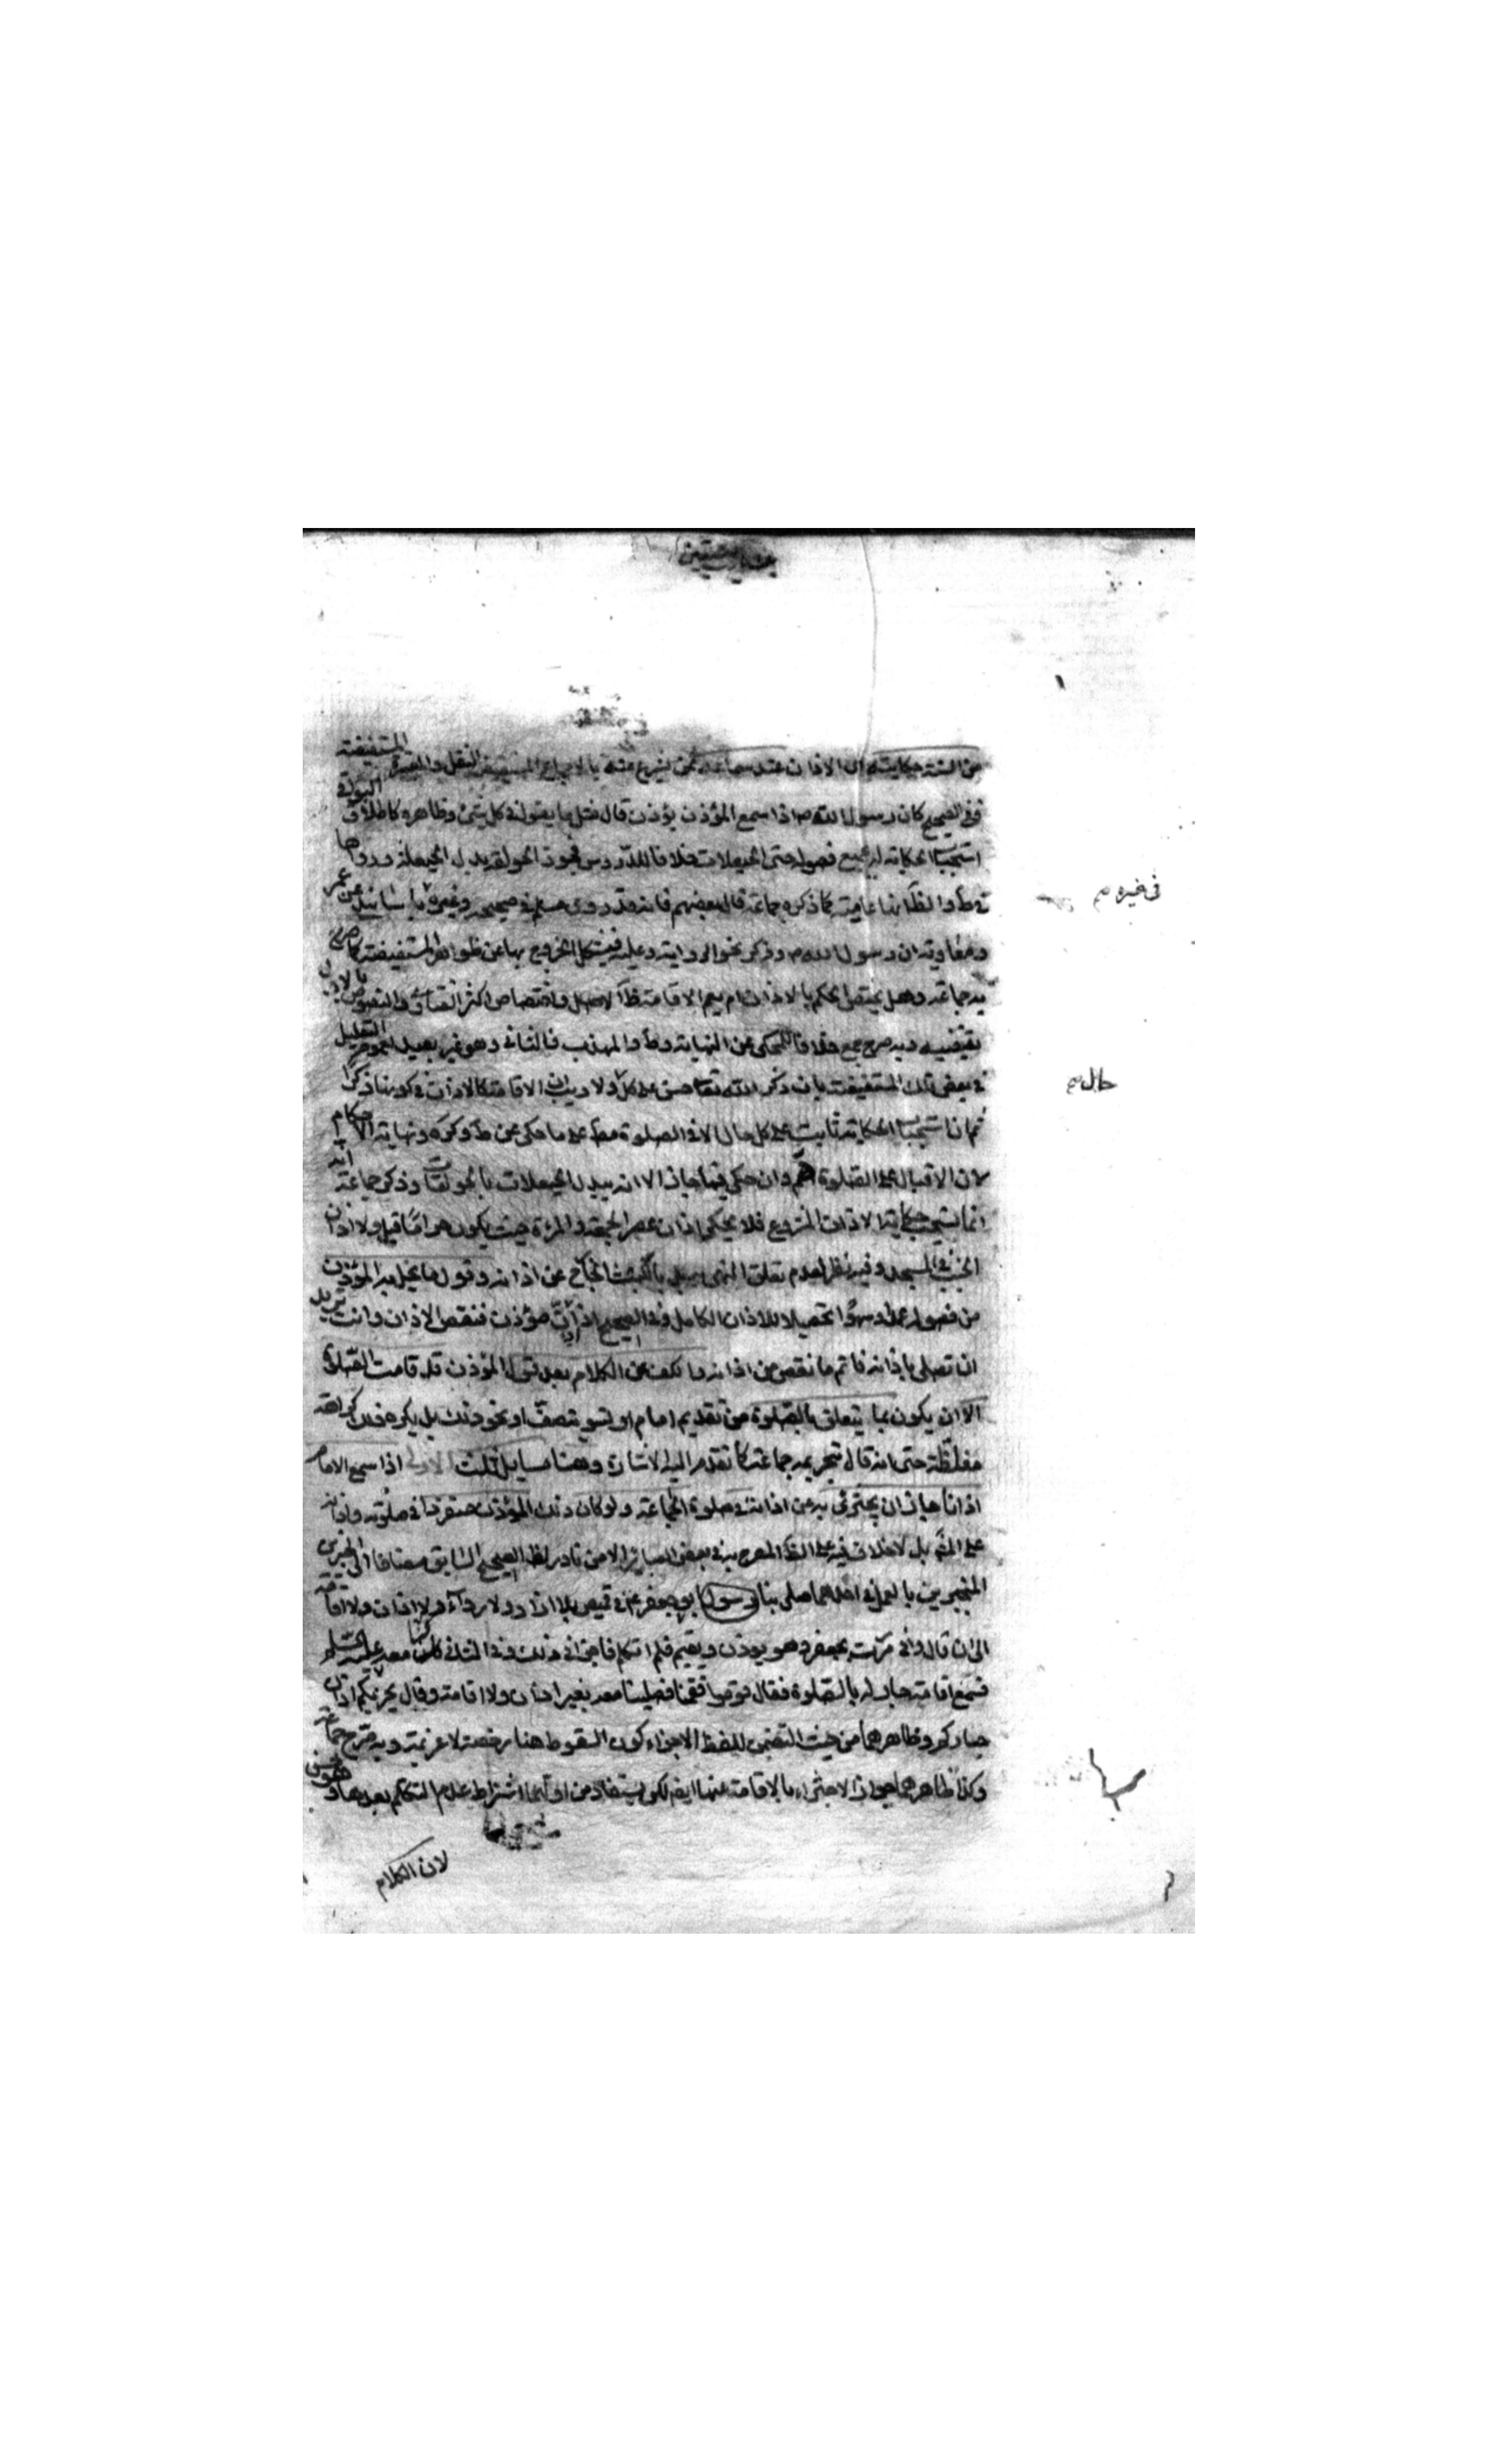 من السنة حكايته اى الاذان عند سماعه ممن يشرع منه بالاجماع المستفيض النقل والمعتبرة المستفيضة
ففى الصحيح كان رسول الله ص اذا سمع المؤذن يؤذن قال مثل ما يقول فى كل شئ وظاهره كاطلاق البواقى
استحباب الحكاية لجميع فصوله حتى الحيعلات خلافا للدروس فجوز الحولقة بدل الحيعلة ورواها
فى ط والظ انها عامية كما ذكره جماعة قال بعضهم فانه قد روى مسلم فى صحيحه وغيره باسانيد عن عمر
ومعاوية ان رسول الله ص وذكر نحو الرواية وعليه فيشكل الخروج بها عن ظواهر المستفيضة كما صرح
به جماعة وهل يختص الحكم بالاذان ام يعم الاقامة ظ الاصل واختصاص اكثر الفتاوى والنصوص بالاول
يقتضيه وبه صرح جمع خلافا للمحكى عن النهاية وط والمهذب فالثانى وهو غير بعيد لعموم التعليل
فى بعض تلك المستفيضة بان ذكر الله تعالى حسن على كل ولا ريب ان الاقامة كالاذان فى كونها ذكرا
ثم ان استحباب الحكاية ثابت على كل حال الا فى الصلوة مط على ما حكى عن ط وكره ونهاية الاحكام
لان الاقبال على الصلوة اهم وان حكى فيها جاز الا انه يبدل الحيعلات بالحولقات وذكر جماعة انه
انما يستحب حكاية الاذان المشروع فلا يحكى اذان عصر الجمعة والمرأة حيث يكون حراما قيل ولا اذان
الجنب فى المسجد وفيه نظر لعدم تعلق النهى عن اذانه وقول ما يخل به المؤذن
من فصوله عمدا وسهوا تحصيلا للاذان الكامل وفى الصحيح اذا اذن مؤذن فنقص الاذان وانت تريد
ان تصلى باذانه فاتم ما نقص من اذانه والكف عن الكلام بعد قول المؤذن قد قامت الصلوة
الا ان يكون بما يتعلق بالصلوة من تقديم امام او تسوية صف او نحو ذلك بل يكره فى ذلك كراهة
مغلظة حتى انه قال بتحريمه جماعة كما تقدم اليه الاشارة وهنا مسايل ثلث الاولى اذا سمع الامام
اذانا جاز ان يجتزئ به عن اذانه فى صلوة الجماعة ولو كان ذلك المؤذن منفردا فى صلوته واذانه
على المش بل لا خلاف فيه على الظ المصرح به فى بعض العباير الا من نادر لظ الصحيح السابق مضافا الى الخبرين
المنجبرين بالعمل فى احدهما صلى بنا ابو جعفر ع فى قميص بلا ازار ولا رداء ولا اذان ولا اقامة
الى ان قال وانى مررت بجعفر وهو يؤذن ويقيم فلم اتكلم فاجزانى ذلك وفى الثانى كنا معه عليه السلام
فسمع اقامة جار له بالصلوة فقال قوموا فقمنا فصلينا معه بغير اذان ولا اقامة وقال يجزيكم اذان
جاركم وظاهرهما من حيث التضمن للفظ الاجزاء كون السقوط هنا رخصة لا عزيمة وبه صرح جماعة
وكذا ظاهرهما جواز الاجتزاء بالاقامة عنها ايضا لكن يستفاد من اولهما اشتراط عدم التكلم بعدها وهو حسن
لان الكلام
فى غيره صح
حال صح